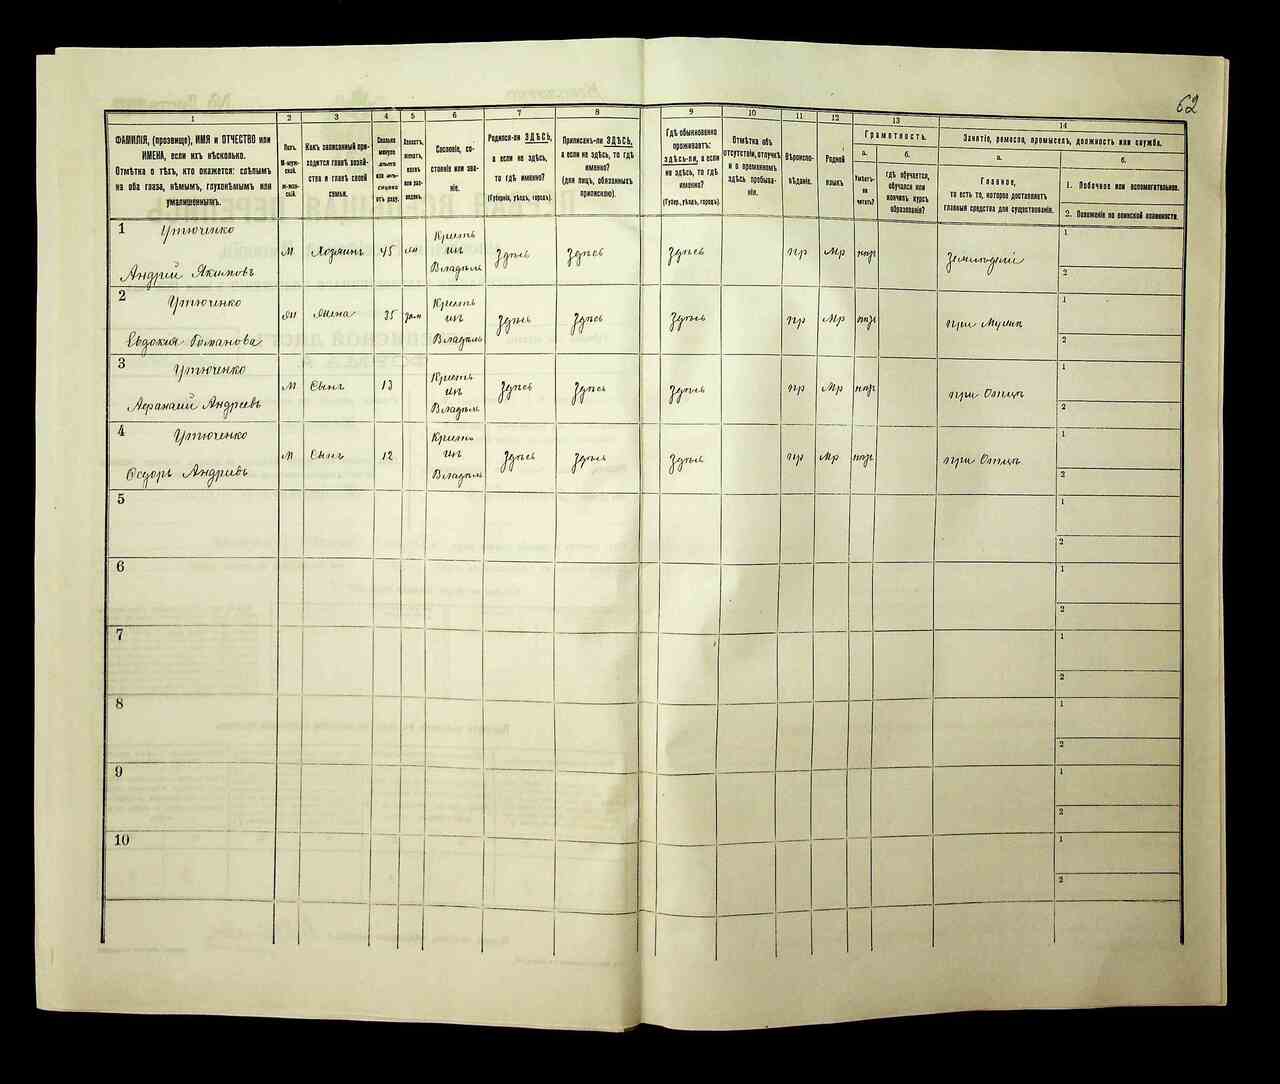 62
1
2
3
4
5
6
7
8
9
10
11
12
13
14
ФАМИЛІЯ, (прозвище), ИМЯ и ОТЧЕСТВО или
ИМЕНА, если ихъ нѣсколько.
Отмѣтка о тѣхъ, кто окажется: слѣпымъ
на оба глаза, нѣмымъ, глухонѣмымъ или
умалишеннымъ.
Полъ.
М-муж-
ской.
Ж-жен-
скій.
Какъ записанный при-
ходится главѣ хозяй-
ства и главѣ своей
семьи.
Сколько
минуло
лѣтъ
или мѣ-
сяцевъ
отъ роду.
Холостъ,
женатъ,
вдовъ
или раз-
веденъ.
Сословіе, со-
стояніе или зва-
ніе.
Родился-ли ЗДѢСЬ,
а если не здѣсь,
то гдѣ именно?
(Губернія, уѣздъ, городъ).
Приписанъ-ли ЗДѢСЬ,
а если не здѣсь, то гдѣ
именно?
(для лицъ, обязанныхъ
припискою).
Гдѣ обыкновенно
проживаетъ:
здѣсь-ли, а если
не здѣсь, то гдѣ
именно?
(Губер., уѣздъ, городъ).
Отмѣтка объ
отсутствіи, отлучкѣ
и о временномъ
здѣсь пребыва-
ніи.
Вѣроиспо-
вѣданіе.
Родной
языкъ
Грамотность.
а.
Умѣетъ-
ли
читать?
б.
гдѣ обучается,
обучался или
кончилъ курсъ
образованія?
Занятіе, ремесло, промыселъ, должность или служба.
а.
Главное,
то есть то, которое доставляетъ
главныя средства для существованія.
б.
1. Побочное или вспомогательное.
2. Положеніе по воинской повинности.
1 Утюченко
Андрій Якимовъ
м Хозяинъ 45 жн
Крестъ
ин
Владѣль
Здѣсь Здѣсь Здѣсь пр Мр
Земледѣліе
1
2
2 Утюченко
Евдокия Романова
жн Жена 35 зам
Крестъ
ин
Владѣль
Здѣсь Здѣсь Здѣсь пр Мр
при Мужѣ
1
2
3 Утюченко
Афанасий Андреевъ
м Сынъ 13
Крестъ
ин
Владѣль
Здѣсь Здѣсь Здѣсь пр Мр
при Отцѣ
1
2
4 Утюченко
Ѳедоръ Андреевъ
м Сынъ 12
Крестъ
ин
Владѣль
Здѣсь Здѣсь Здѣсь пр Мр
при Отцѣ
1
2
5
1
2
6
1
2
7
1
2
8
1
2
9
1
2
10
1
2